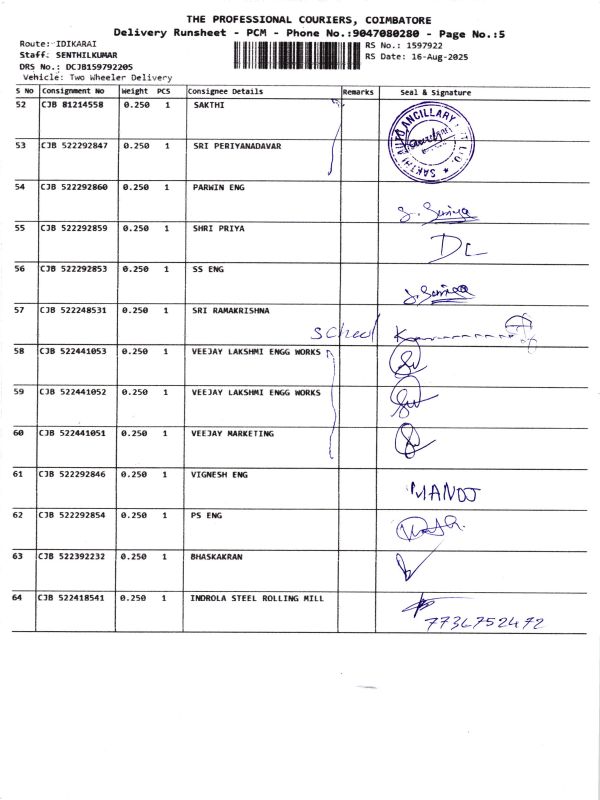 THE PROFESSIONAL COURIERS, COIMBATORE
Delivery Runsheet - PCM - Phone No.:9047080280 - Page No.:5
Route: IDIKARAI
RS No.: 1597922
Staff: SENTHILKUMAR
RS Date: 16-Aug-2025
DRS No.: DCJB159792205
Vehicle: Two Wheeler Delivery
S No Consignment No Weight PCS Consignee Details Remarks Seal & Signature
52 CJB 81214558 0.250 1 SAKTHI
SAKTHI AUTO ANCILLARY
53 CJB 522292847 0.250 1 SRI PERIYANADAVAR
54 CJB 522292860 0.250 1 PARWIN ENG
55 CJB 522292859 0.250 1 SHRI PRIYA
56 CJB 522292853 0.250 1 SS ENG
57 CJB 522248531 0.250 1 SRI RAMAKRISHNA
School
58 CJB 522441053 0.250 1 VEEJAY LAKSHMI ENGG WORKS
59 CJB 522441052 0.250 1 VEEJAY LAKSHMI ENGG WORKS
60 CJB 522441051 0.250 1 VEEJAY MARKETING
61 CJB 522292846 0.250 1 VIGNESH ENG
MANOJ
62 CJB 522292854 0.250 1 PS ENG
63 CJB 522392232 0.250 1 BHASKAKRAN
64 CJB 522418541 0.250 1 INDROLA STEEL ROLLING MILL
7736752472